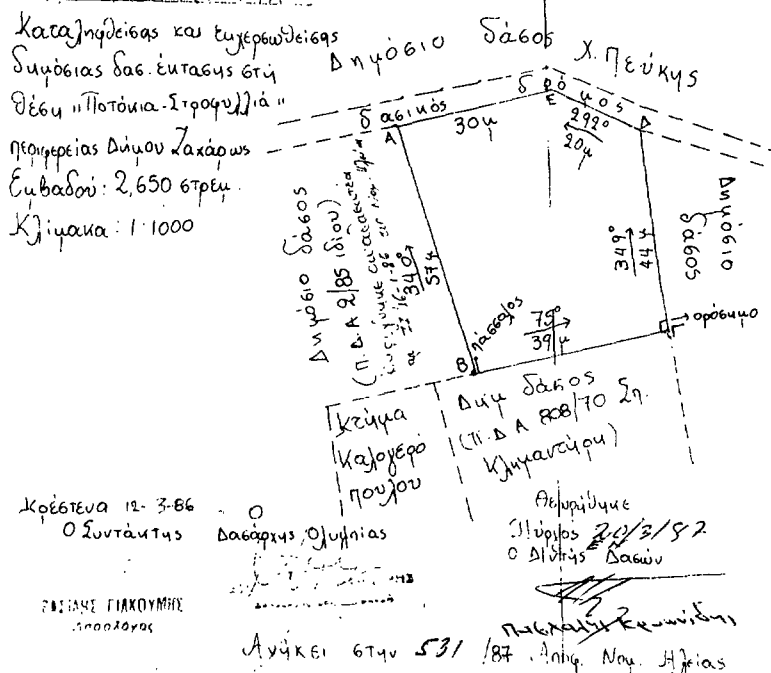 Καταληφθείσας και εκχερσωθείσας
δημόσιας δασ. έκτασης στη
θέση "Ποτόκια-Στροφυλλιά"
περιφερείας Δήμου Ζαχάρως
Εμβαδού: 2,650 στρεμ.
Κλίμακα: 1:1000
Δημόσιο δάσος Χ. Πεύκης
δασικός δρόμος
Α
30μ
Ε
292°
20μ
Δ
Δημόσιο δάσος
(Π.Δ.Α 2/85 ιδίου)
340°
57μ
349°
44μ
Δημόσιο
δάσος
Β
πάσσαλος
75°
39μ
Γ
ορόσημο
Κτήμα
Καλογερό
πουλου
Δημ δάσος
(Π.Δ Α 808/70 Σπ.
Κλημαντίρη)
Κρέστενα 12-3-86
Ο Συντάκτης
Ο
Δασάρχης Ολυμπίας
ΓΙΑΚΟΥΜΗΣ
Θεωρήθηκε
Πύργος 20/3/87
Ο Δ/ντής Δασών
Ανήκει στην 531/87 Αποφ. Νομ. Ηλείας